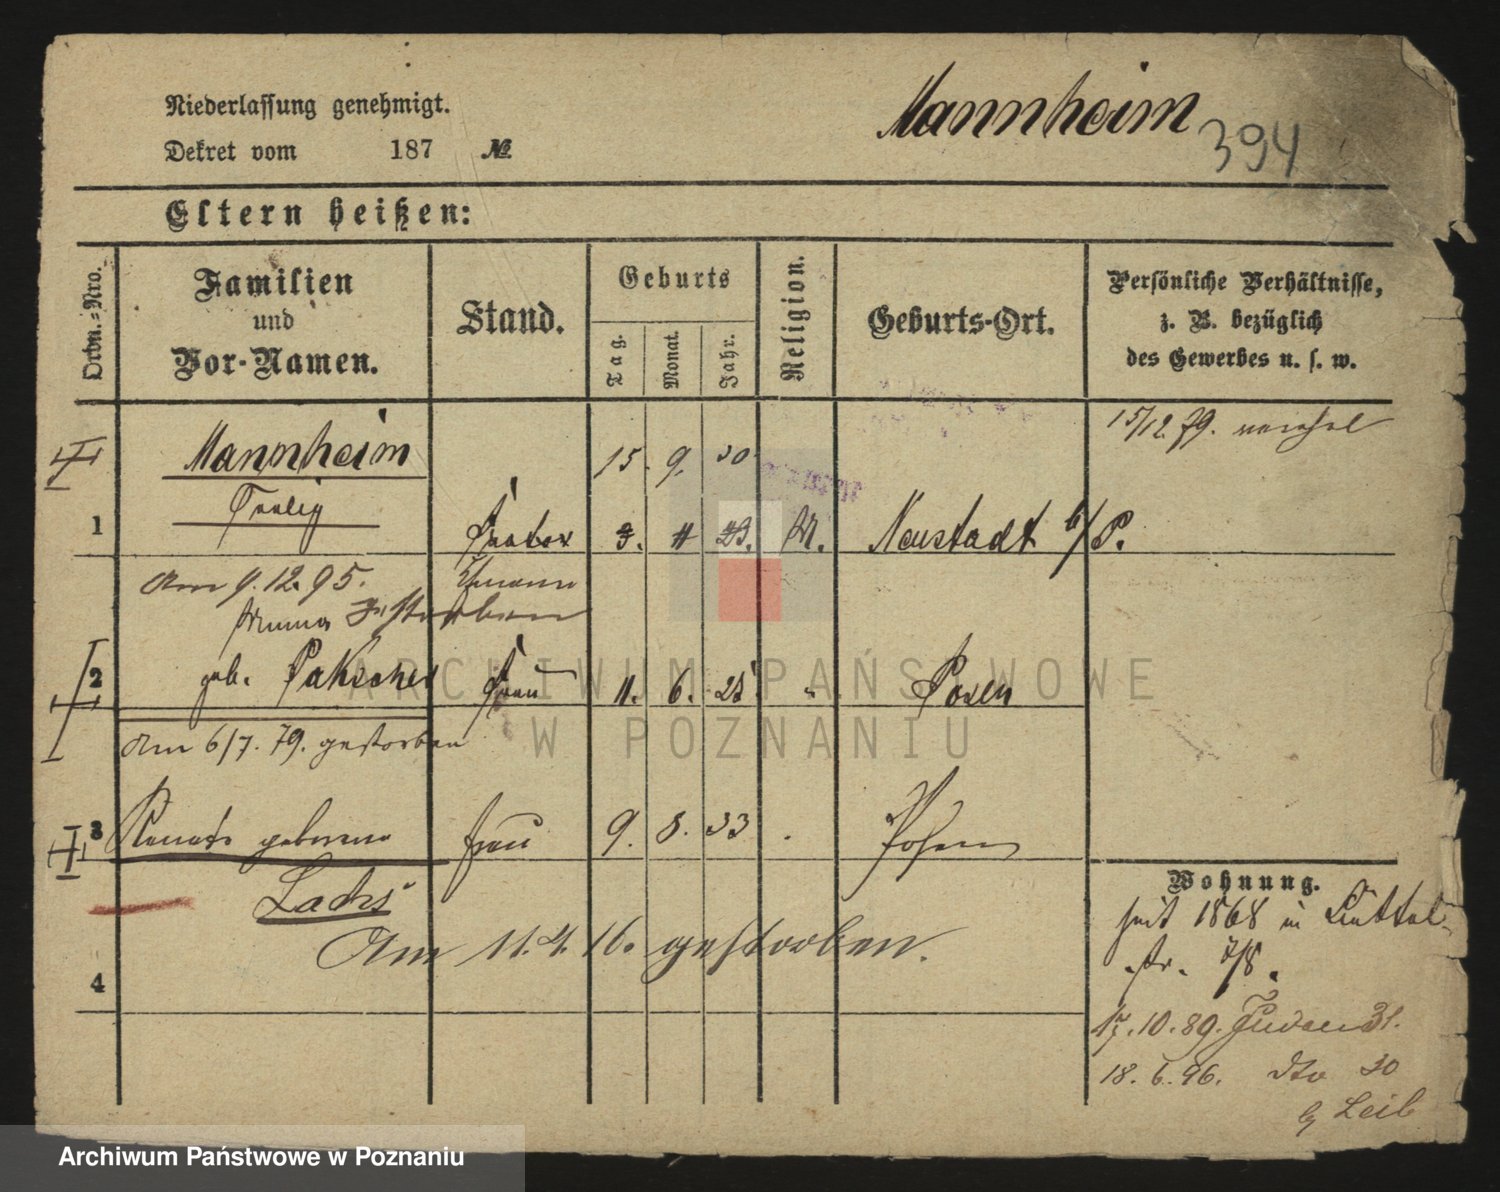 Niederlassung genehmigt.
Dekret vom 187 №
Mannheim
394
Eltern heißen:
Ordn.-Nro.
Familien
und
Vor-Namen.
Stand.
Geburts
Tag.
Monat.
Jahr.
Religion.
Geburts-Ort.
Persönliche Verhältnisse,
z. B. bezüglich
des Gewerbes u. s. w.
15/12 79.
Mannheim
15. 9. 30
1
3. 11 23. M. Neustadt b/P.
Am 9. 12. 95.
gestorben
2
geb. Pakscher Frau 11. 6. 25 " Posen
Am 6/7. 79. gestorben
3 Renate geborene Frau 9. 8. 33 Posen
Lachs
Am 11. 4. 16. gestorben.
4
Wohnung.
seit 1868 in
str. 7/8.
17. 10. 89. Juden 31.
18. 6. 96. dto 30
b/ Leib
ARCHIWUM PAŃSTWOWE
W POZNANIU
Archiwum Państwowe w Poznaniu